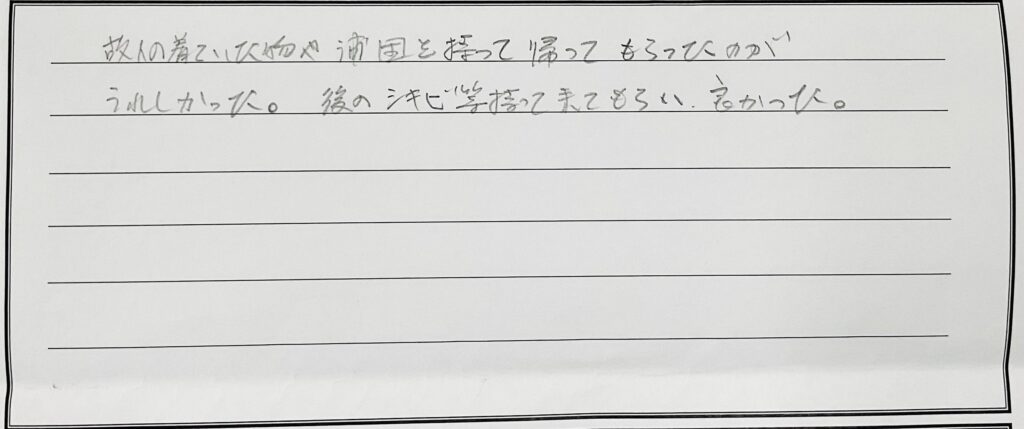 故人の着ていた物や浦団を持って帰ってもらったのが
うれしかった。後のシキビ等持って来てもらい、良かった。